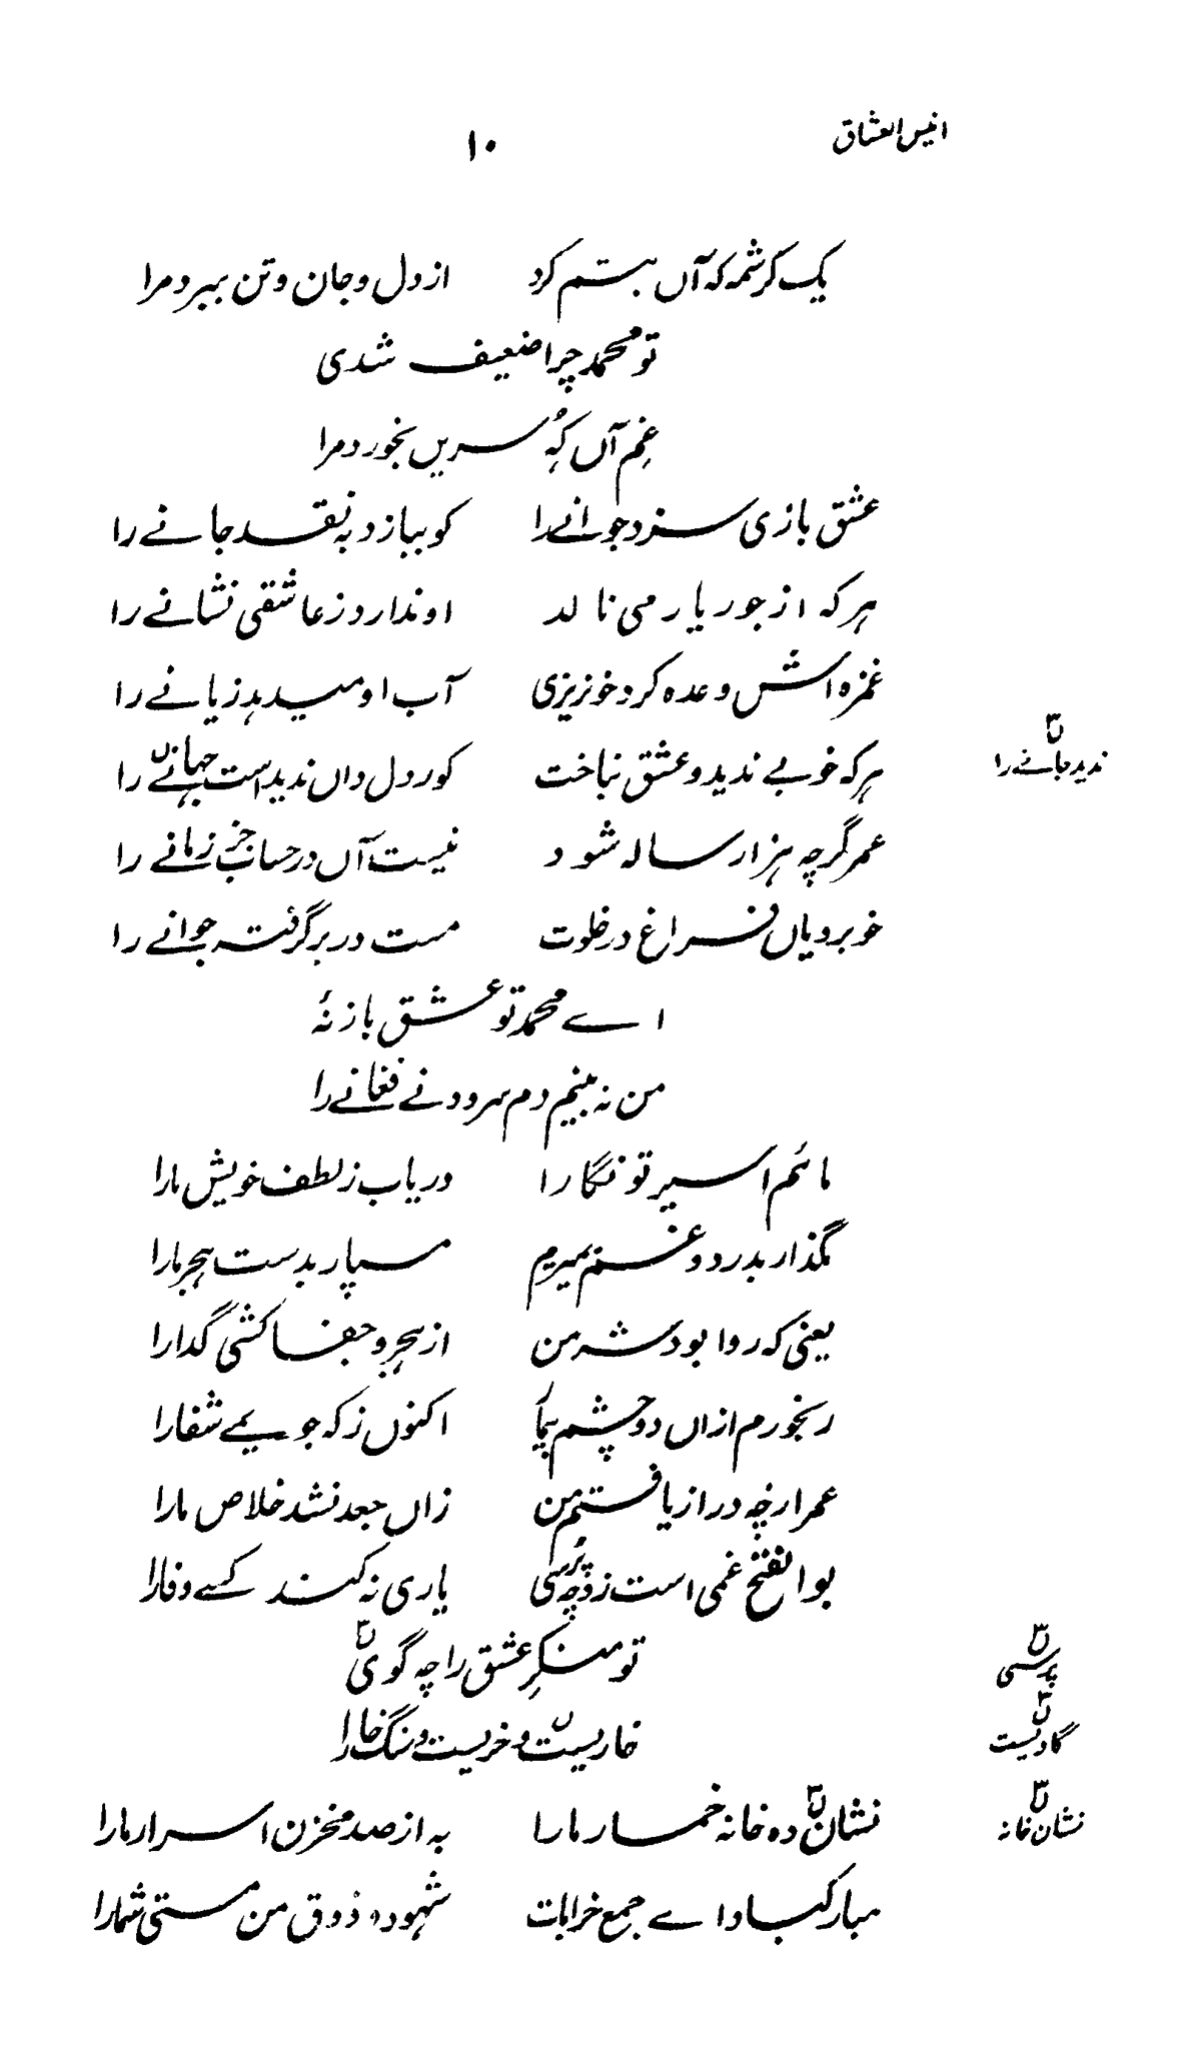 انیس العشاق ۱۰
یک کرشمه که آں بتم کرد از دل و جان و تن ببرد مرا
تو محمد چرا ضعیف شدی
غم آں کُہ سریں بخورد مرا
عشق بازی سزد جوانے را کو ببازد بہ نقد جانے را
ہر کہ از جور یار می نالد او ندارد ز عاشقی نشانے را
غمزہ اش وعدہ کرد خونریزی آب او میدہد زیانے را
ہر کہ خوبے ندید و عشق نباخت کور دل داں ندید است جہانےں را
ن۳ ندید جانے را
عمر گرچہ ہزار سالہ شود نیست آں در حساب جز زمانے را
خوبرویاں فراغ در خلوت مست در بر گرفتہ جوانے را
اے محمد تو عشق باز نۂ
من نہ بینم دم سرود نے فغانے را
مائم اسیر تو نگارا دریاب ز لطف خویش مارا
مگذار بدرد و غم بمیرم مسپار بدست ہجر مارا
یعنی کہ روا بود شہ من از ہجر و جفا کشی گدا را
رنجورم ازاں دو چشم اکنوں ز کہ جویمے شفا را
عمر ارچہ دراز یافتم من زاں جعد نشد خلاص مارا
بوالفتح غمی است زو چہ پُرسی یاری نہ کند کسے وفا را
تو منکرِ عشق را چہ گوی ن۳
ن۳ پرسی
خاریست و خریست و سنگ خارا
ن۳ گاویست
نشان ن۳ دہ خانہ خمار مارا بہ از صد مخزن اسرار مارا
ن۳ نشان خانہ
مبارکباد اے جمع خرابات شہود و ذوق من مستی شمارا